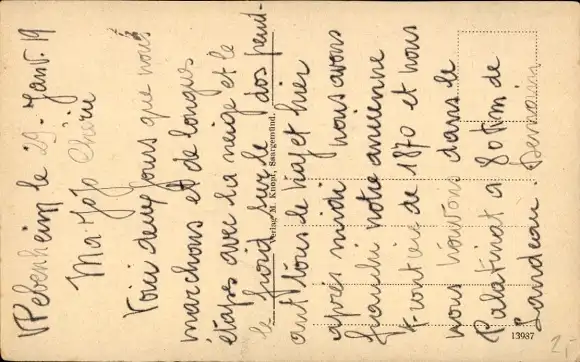 Pebenheim le 29 - Janv. 19
Ma Jojo Chérie
Voici deux jours que nous
marchons et de longues
étapes avec la neige et le
froid sur le dos pend-
ant tous le traj et hier
après midi nous avons
franchi notre ancienne
frontière de 1870 et nous
nous trouvons dans le
Palatinat a 80 Km de
Landeau. Demain
Verlag M. Knopf, Saargemünd.
13987
2,-